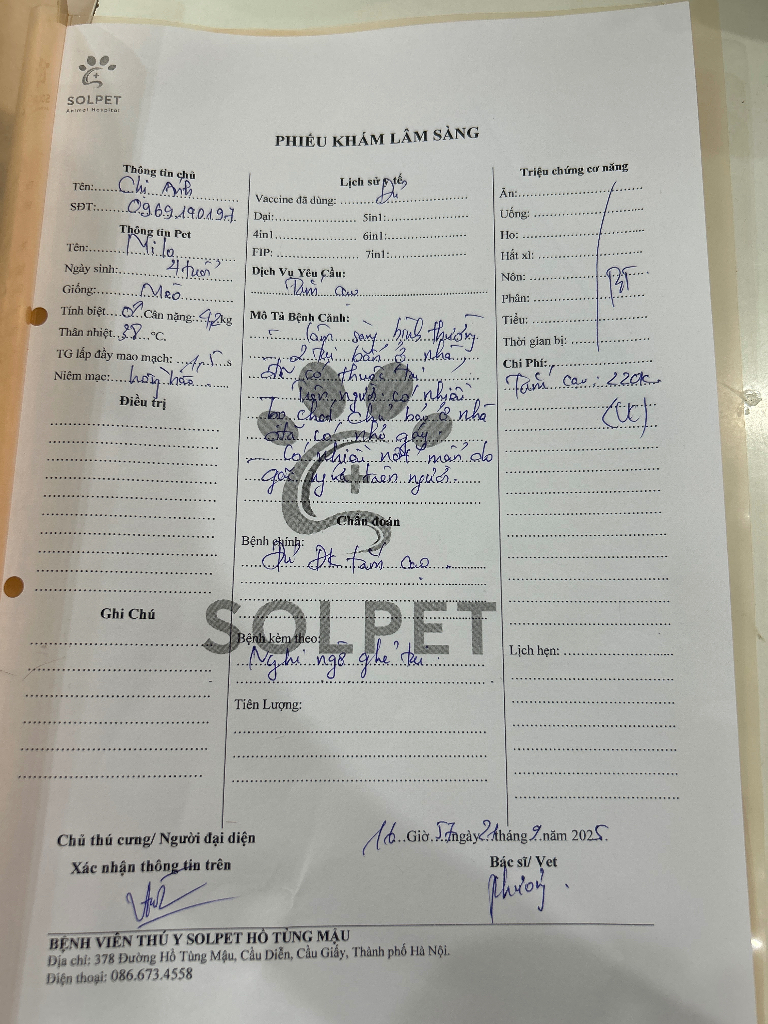 SOLPET
Animal Hospital
PHIẾU KHÁM LÂM SÀNG
Thông tin chủ
Tên: Chị Anh
SĐT: 0969.190197
Thông tin Pet
Tên: Milo
Ngày sinh: 4 tuổi
Giống: Mèo
Tính biệt: ♂ Cân nặng: 4,2 kg
Thân nhiệt: 38 °C.
TG lấp đầy mao mạch: 1,5 s
Niêm mạc: hồng hào
Điều trị
Ghi Chú
Lịch sử y tế
Vaccine đã dùng: Đủ
Dại: 5in1:
4in1 6in1:
FIP: 7in1:
Dịch Vụ Yêu Cầu:
Tắm cạo
Mô Tả Bệnh Cảnh:
- Lâm sàng bình thường
- 2 tai bẩn ở nhà,
đã có thuốc trị
- Trên người có nhiều
bọ chét. Chủ báo ở nhà
đã có nhỏ gáy.
- Có nhiều nốt mẩn do
gãi ngứa trên người.
Chẩn đoán
Bệnh chính:
Đủ ĐK tắm cạo
SOLPET
Bệnh kèm theo:
Nghi ngờ ghẻ tai
Tiên Lượng:
Triệu chứng cơ năng
Ăn:
Uống:
Ho:
Hắt xì:
Nôn: BT
Phân:
Tiểu:
Thời gian bị:
Chi Phí:
Tắm cạo: 220k
(CK)
Lịch hẹn:
Chủ thú cưng/ Người đại diện
Xác nhận thông tin trên
16 Giờ 57 ngày 21 tháng 9 năm 2025.
Bác sĩ/ Vet
Phương
BỆNH VIÊN THÚ Y SOLPET HỒ TÙNG MẬU
Địa chỉ: 378 Đường Hồ Tùng Mậu, Cầu Diễn, Cầu Giấy, Thành phố Hà Nội.
Điện thoại: 086.673.4558